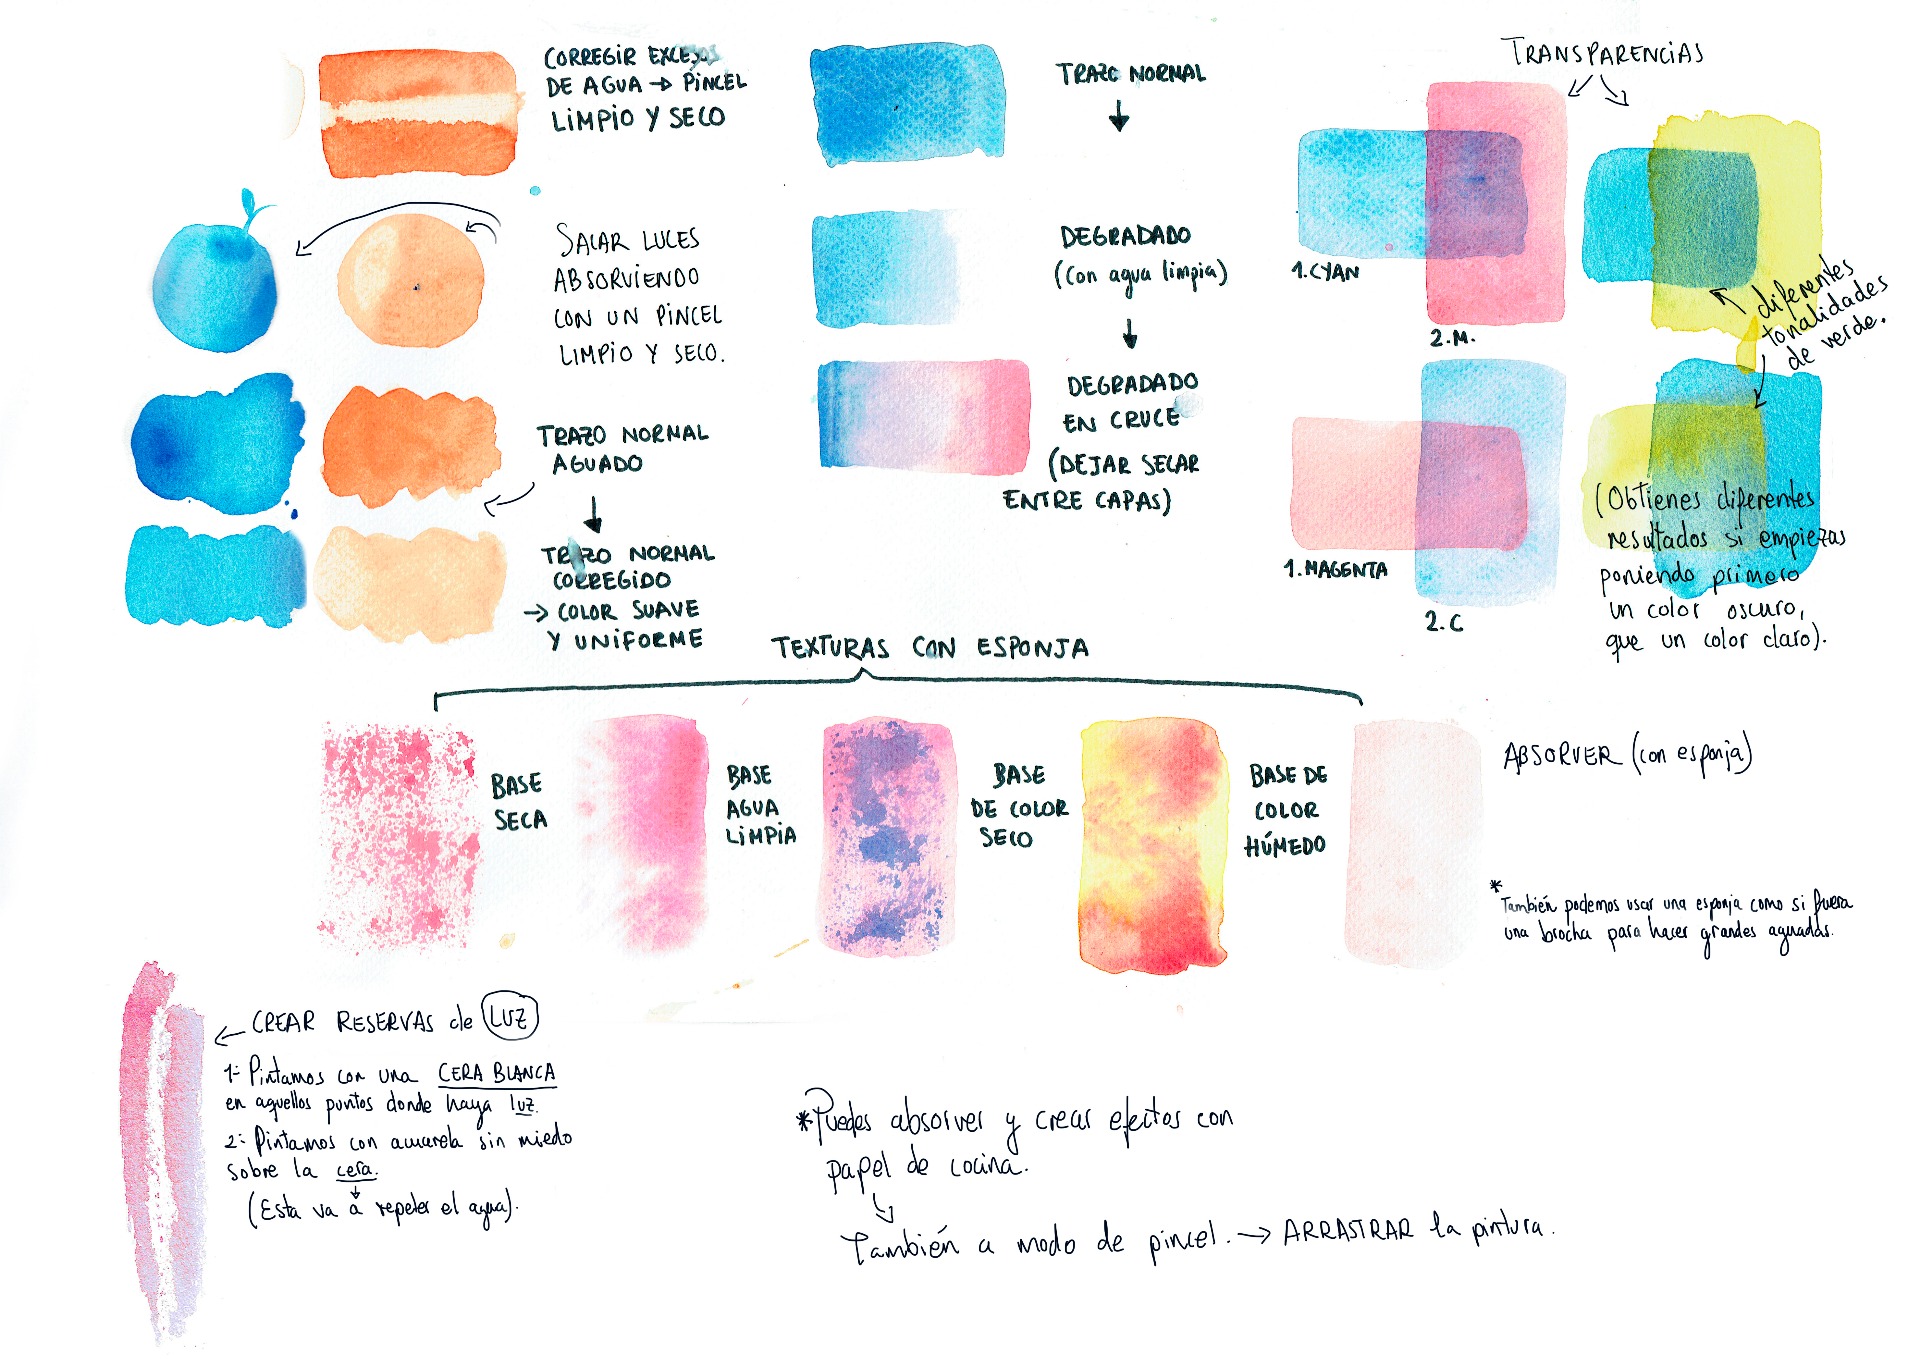 CORREGIR EXCESOS
DE AGUA → PINCEL
LIMPIO Y SECO
SACAR LUCES
ABSORVIENDO
CON UN PINCEL
LIMPIO Y SECO.
TRAZO NORMAL
AGUADO
TRAZO NORMAL
CORREGIDO
→ COLOR SUAVE
Y UNIFORME
TRAZO NORMAL
DEGRADADO
(con agua limpia)
DEGRADADO
EN CRUCE
(DEJAR SECAR
ENTRE CAPAS)
TRANSPARENCIAS
1.CYAN
2.M.
diferentes
tonalidades
de verde.
1.MAGENTA
2.C
(Obtienes diferentes
resultados si empiezas
poniendo primero
un color oscuro,
que un color claro).
TEXTURAS CON ESPONJA
BASE
SECA
BASE
AGUA
LIMPIA
BASE
DE COLOR
SECO
BASE DE
COLOR
HÚMEDO
ABSORVER (con esponja)
*También podemos usar una esponja como si fuera
una brocha para hacer grandes aguadas.
← CREAR RESERVAS de LUZ
1- Pintamos con una CERA BLANCA
en aquellos puntos donde haya luz.
2- Pintamos con acuarela sin miedo
sobre la cera.
(Esta va a repeler el agua).
*Puedes absorver y crear efectos con
papel de cocina.
También a modo de pincel. → ARRASTRAR la pintura.